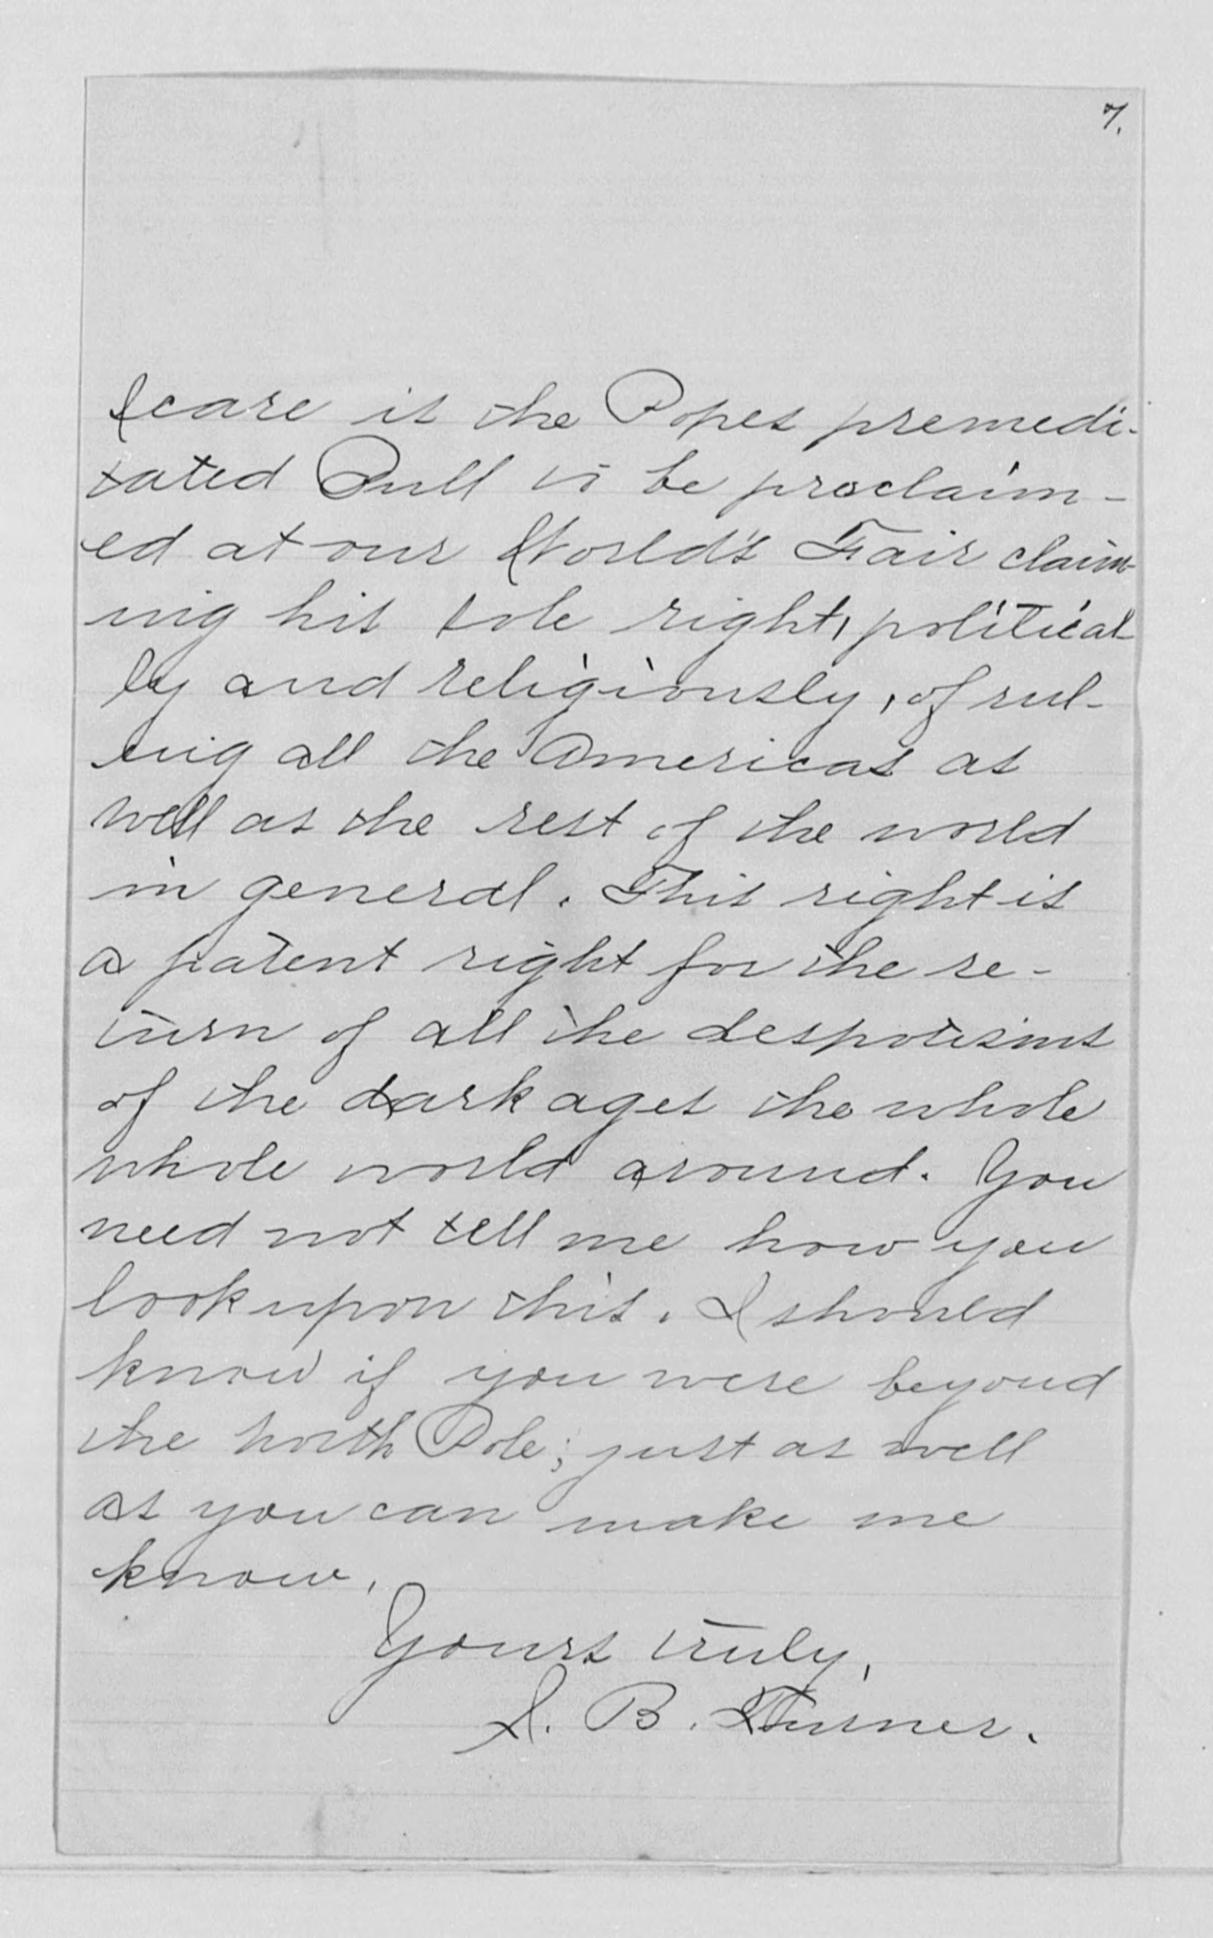 7.
Scare is the Popes premedi-
tated Bull to be proclaim-
ed at our World's Fair claim-
ing his sole right, political-
ly and religiously, of rul-
ing all the Americas as
well as the rest of the world
in general. This right is
a patent right for the re-
turn of all the despotisms
of the dark ages the whole
whole world around. You
need not tell me how you
look upon this. I should
know if you were beyond
the north Pole; just as well
as you can make me
know.
Yours truly,
J. B. Turner.